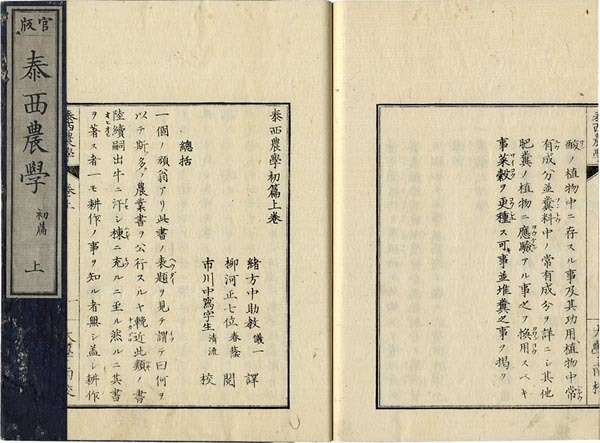 官版
泰西農學 初篇 上
泰西農學
大學南校
酸ノ植物中ニ存スル事及其功用植物中常
有成分並糞料中ノ常有成分ヲ詳ニシ其他
肥糞ノ植物ニ應驗アル事之ヲ換用スベキ
事菜穀ヲ更種ス可キ事並堆糞之事ヲ掲ク
泰西農學初篇上卷
緒方中助教 儀一 譯
柳河正七位 春蔭 閲
市川中寫字生 清流 校
總括
一個ノ碩翁アリ此書ノ表題ヲ見テ謂テ曰何ヲ
以テ斯多ク農業書ヲ公行スルヤ輓近此類ノ書
陸續嗣出牛ニ汗シ棟ニ充ルニ至ル然ルニ其書
ヲ著ス者一モ耕作ノ事ヲ知ル者無シ蓋シ耕作
泰西農學
大學南校